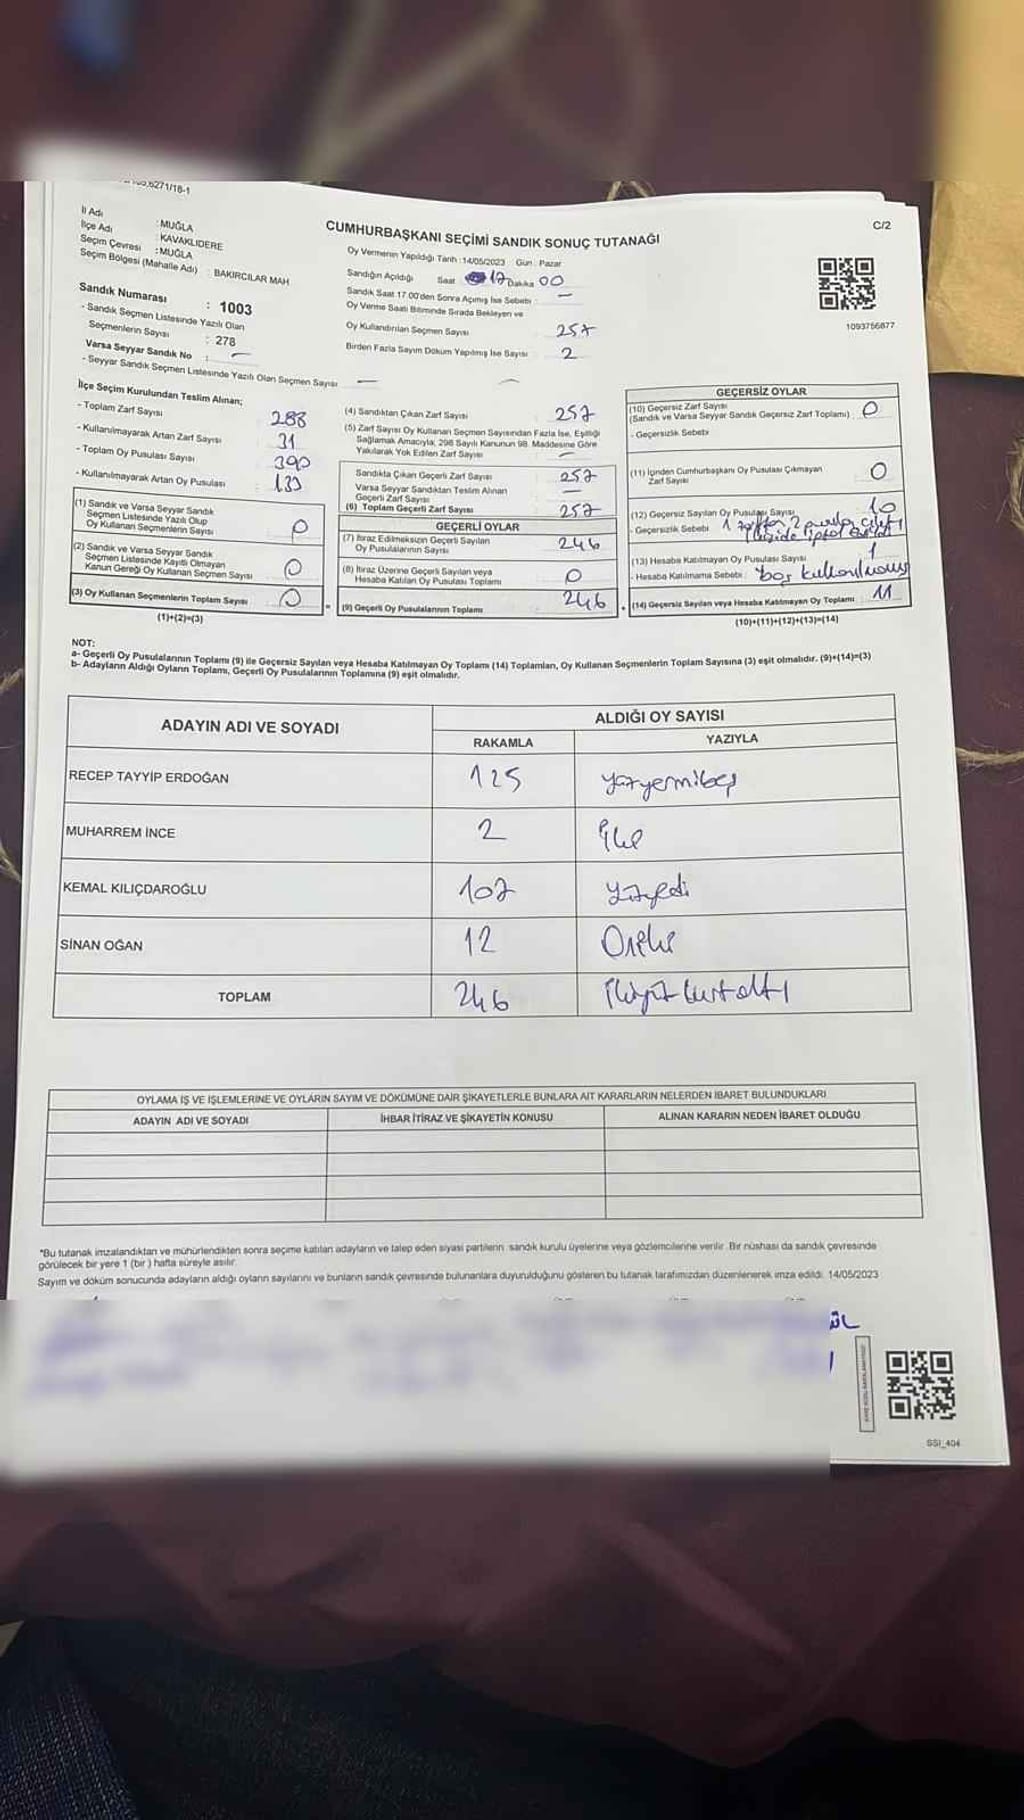 6271/18-1
C/2
İl Adı : MUĞLA
İlçe Adı : KAVAKLIDERE
Seçim Çevresi : MUĞLA
Seçim Bölgesi (Mahalle Adı) : BAKIRCILAR MAH
Sandık Numarası : 1003
- Sandık Seçmen Listesinde Yazılı Olan
Seçmenlerin Sayısı : 278
Varsa Seyyar Sandık No : —
- Seyyar Sandık Seçmen Listesinde Yazılı Olan Seçmen Sayısı —
CUMHURBAŞKANI SEÇİMİ SANDIK SONUÇ TUTANAĞI
Oy Vermenin Yapıldığı Tarih :14/05/2023 Gün : Pazar
Sandığın Açıldığı Saat 17 Dakika 00
Sandık Saat 17.00'den Sonra Açımış İse Sebebi : —
Oy Verme Saati Bitiminde Sırada Bekleyen ve
Oy Kullandırılan Seçmen Sayısı 257
Birden Fazla Sayım Döküm Yapılmış İse Sayısı 2
1093756877
İlçe Seçim Kurulundan Teslim Alınan;
- Toplam Zarf Sayısı 288
- Kullanılmayarak Artan Zarf Sayısı 31
- Toplam Oy Pusulası Sayısı : 390
- Kullanılmayarak Artan Oy Pusulası : 133
(1) Sandık ve Varsa Seyyar Sandık
Seçmen Listesinde Yazılı Olup
Oy Kullanan Seçmenlerin Sayısı 0
(2) Sandık ve Varsa Seyyar Sandık
Seçmen Listesinde Kayıtlı Olmayan
Kanun Gereği Oy Kullanan Seçmen Sayısı 0
(3) Oy Kullanan Seçmenlerin Toplam Sayısı 0
(1)+(2)=(3)
(4) Sandıktan Çıkan Zarf Sayısı 257
(5) Zarf Sayısı Oy Kullanan Seçmen Sayısından Fazla İse, Eşitliği
Sağlamak Amacıyla, 298 Sayılı Kanunun 98. Maddesine Göre
Yakılarak Yok Edilen Zarf Sayısı —
Sandıkta Çıkan Geçerli Zarf Sayısı 257
Varsa Seyyar Sandıktan Teslim Alınan
Geçerli Zarf Sayısı —
(6) Toplam Geçerli Zarf Sayısı 257
GEÇERLİ OYLAR
(7) İtiraz Edilmeksizin Geçerli Sayılan
Oy Pusulalarının Sayısı 246
(8) İtiraz Üzerine Geçerli Sayılan veya
Hesaba Katılan Oy Pusulası Toplamı 0
(9) Geçerli Oy Pusulalarının Toplamı 246
GEÇERSİZ OYLAR
(10) Geçersiz Zarf Sayısı
(Sandık ve Varsa Seyyar Sandık Geçersiz Zarf Toplamı) 0
- Geçersizlik Sebebi
(11) İçinden Cumhurbaşkanı Oy Pusulası Çıkmayan
Zarf Sayısı 0
(12) Geçersiz Sayılan Oy Pusulası Sayısı 10
- Geçersizlik Sebebi 1 zarftan 2 pusula
(13) Hesaba Katılmayan Oy Pusulası Sayısı 1
- Hesaba Katılmama Sebebi : boş kullanılmış
(14) Geçersiz Sayılan veya Hesaba Katılmayan Oy Toplamı 11
(10)+(11)+(12)+(13)=(14)
NOT:
a- Geçerli Oy Pusulalarının Toplamı (9) ile Geçersiz Sayılan veya Hesaba Katılmayan Oy Toplamı (14) Toplamları, Oy Kullanan Seçmenlerin Toplam Sayısına (3) eşit olmalıdır. (9)+(14)=(3)
b- Adayların Aldığı Oyların Toplamı, Geçerli Oy Pusulalarının Toplamına (9) eşit olmalıdır.
ADAYIN ADI VE SOYADI ALDIĞI OY SAYISI
RAKAMLA YAZIYLA
RECEP TAYYİP ERDOĞAN 125 yüzyirmibeş
MUHARREM İNCE 2 İki
KEMAL KILIÇDAROĞLU 107 yüzyedi
SİNAN OĞAN 12 Oniki
TOPLAM 246 İkiyüzkırkaltı
OYLAMA İŞ VE İŞLEMLERİNE VE OYLARIN SAYIM VE DÖKÜMÜNE DAİR ŞİKAYETLERLE BUNLARA AİT KARARLARIN NELERDEN İBARET BULUNDUKLARI
ADAYIN ADI VE SOYADI İHBAR İTİRAZ VE ŞİKAYETİN KONUSU ALINAN KARARIN NEDEN İBARET OLDUĞU
*Bu tutanak imzalandıktan ve mühürlendikten sonra seçime katılan adayların ve talep eden siyasi partilerin sandık kurulu üyelerine veya gözlemcilerine verilir. Bir nüshası da sandık çevresinde
görülecek bir yere 1 (bir) hafta süreyle asılır.
Sayım ve döküm sonucunda adayların aldığı oyların sayılarını ve bunların sandık çevresinde bulunanlara duyurulduğunu gösteren bu tutanak tarafımızdan düzenlenerek imza edildi. 14/05/2023
SSI_404